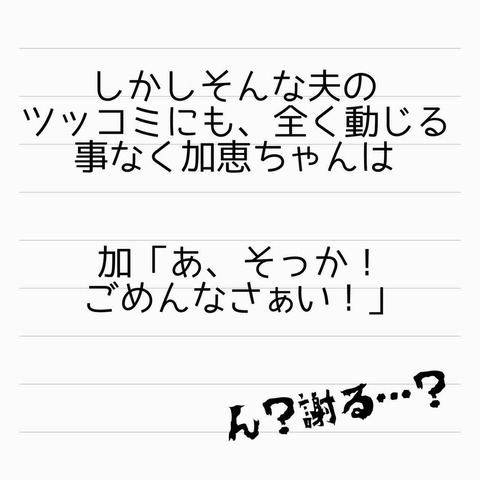 しかしそんな夫の
ツッコミにも、全く動じる
事なく加恵ちゃんは
加「あ、そっか！
ごめんなさぁい！」
ん?謝る…?